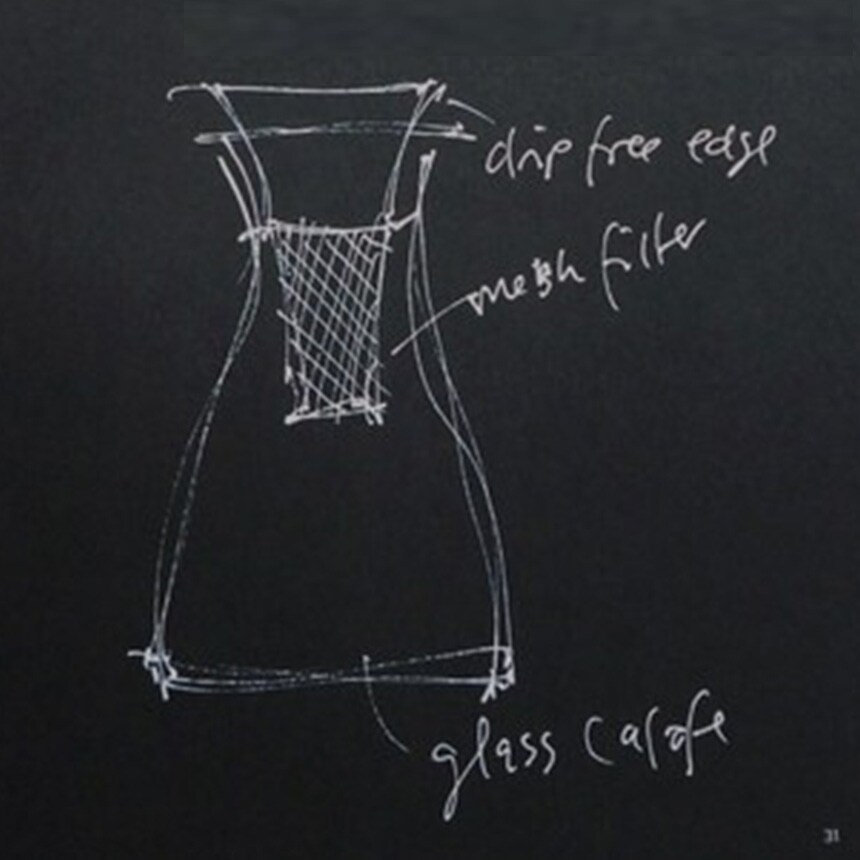 drip free edge
mesh filter
glass carafe
31